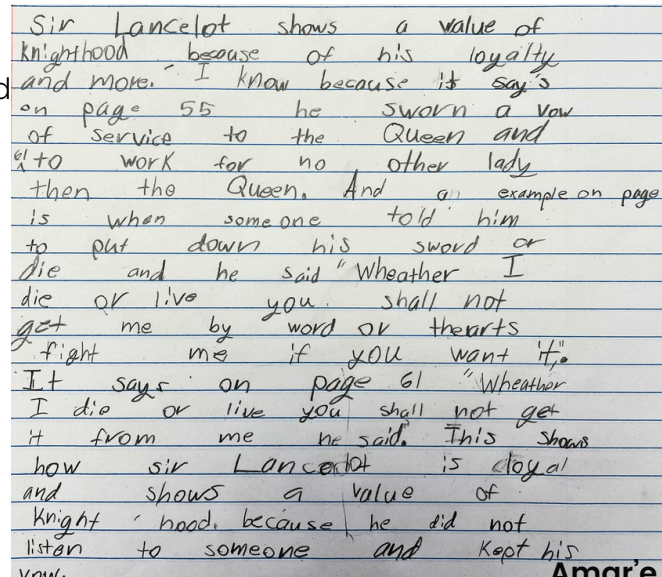 Sir Lancelot shows a value of
Knighthood because of his loyalty
and more. I know because it say's
on page 55 he sworn a vow
of service to the Queen and
61 to work for no other lady
then the Queen. And an example on page
is when someone told him
to put down his sword or
die and he said "Wheather I
die or live you shall not
get me by word or thearts
fight me if you want it,".
It says on page 61 "Wheather
I die or live you shall not get
it from me he said. This shows
how sir Lancelot is loyal
and shows a value of
Knight hood. because he did not
listen to someone and Kept his
vow.
Amar'e